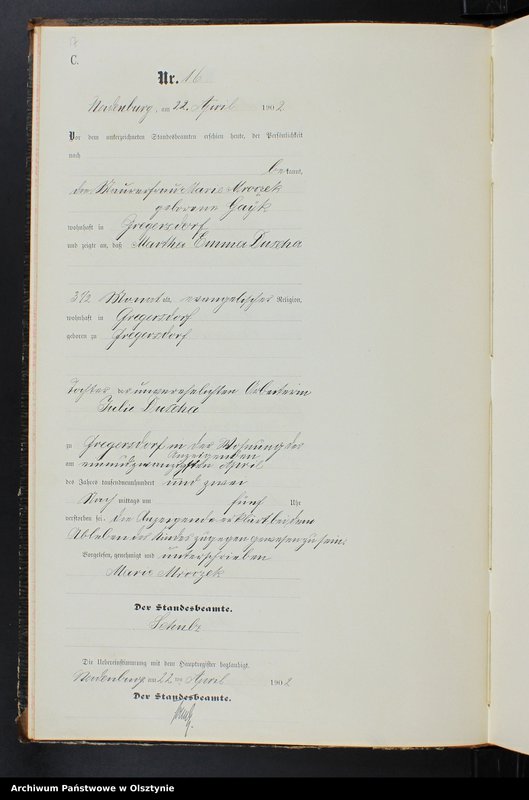 C.
Nr. 16
Neidenburg, am 22. April 1902
Vor dem unterzeichneten Standesbeamten erschien heute, der Persönlichkeit
nach
bekannt,
die Maurerfrau Marie Mroczek
geborene Gayk
wohnhaft in Gregersdorf
und zeigte an, daß Martha Emma Duscha
3 1/2 Monat alt, evangelischer Religion,
wohnhaft in Gregersdorf
geboren zu Gregersdorf
Tochter der unverehelichten Arbeiterin
Julie Duscha
zu Gregersdorf in der Wohnung der
Anzeigenden
am einundzwanzigsten April
des Jahres tausendneunhundert und zwei
Nach mittags um fünf Uhr
verstorben sei. Die Anzeigende erklärt bei dem
Ableben des Kindes zugegen gewesen zu sein.
Vorgelesen, genehmigt und unterschrieben
Marie Mroczek
Der Standesbeamte.
Schulz
Die Uebereinstimmung mit dem Hauptregister beglaubigt.
Neidenburg, am 22ten April 1902
Der Standesbeamte.
Archiwum Państwowe w Olsztynie